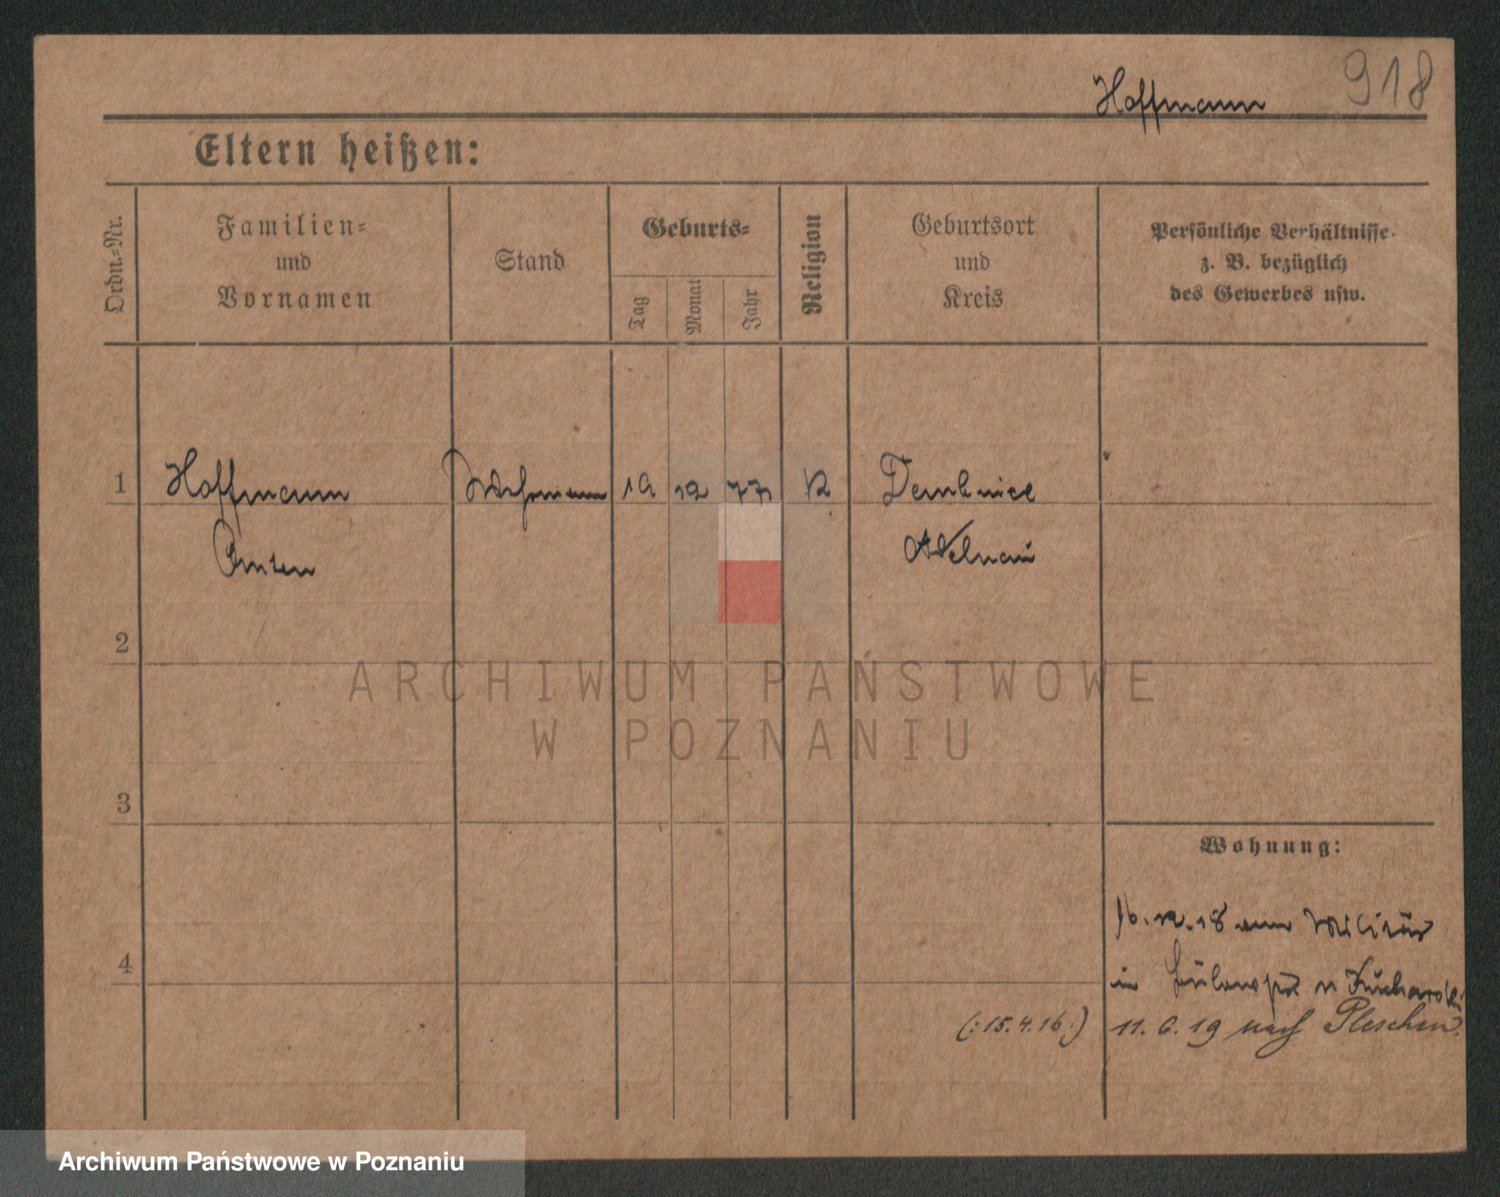 Hoffmann 918
Eltern heißen:
Ordn.-Nr.
Familien-
und
Vornamen
Stand
Geburts-
Tag
Monat
Jahr
Religion
Geburtsort
und
Kreis
Persönliche Verhältnisse.
z. B. bezüglich
des Gewerbes usw.
1 Hoffmann 12 77 K
Adelnau
2
ARCHIWUM PAŃSTWOWE
W POZNANIU
3
Wohnung:
16.12.18 vom Militär
4
in
(:15.4.16:) 11. 6. 19 nach Pleschen.
Archiwum Państwowe w Poznaniu